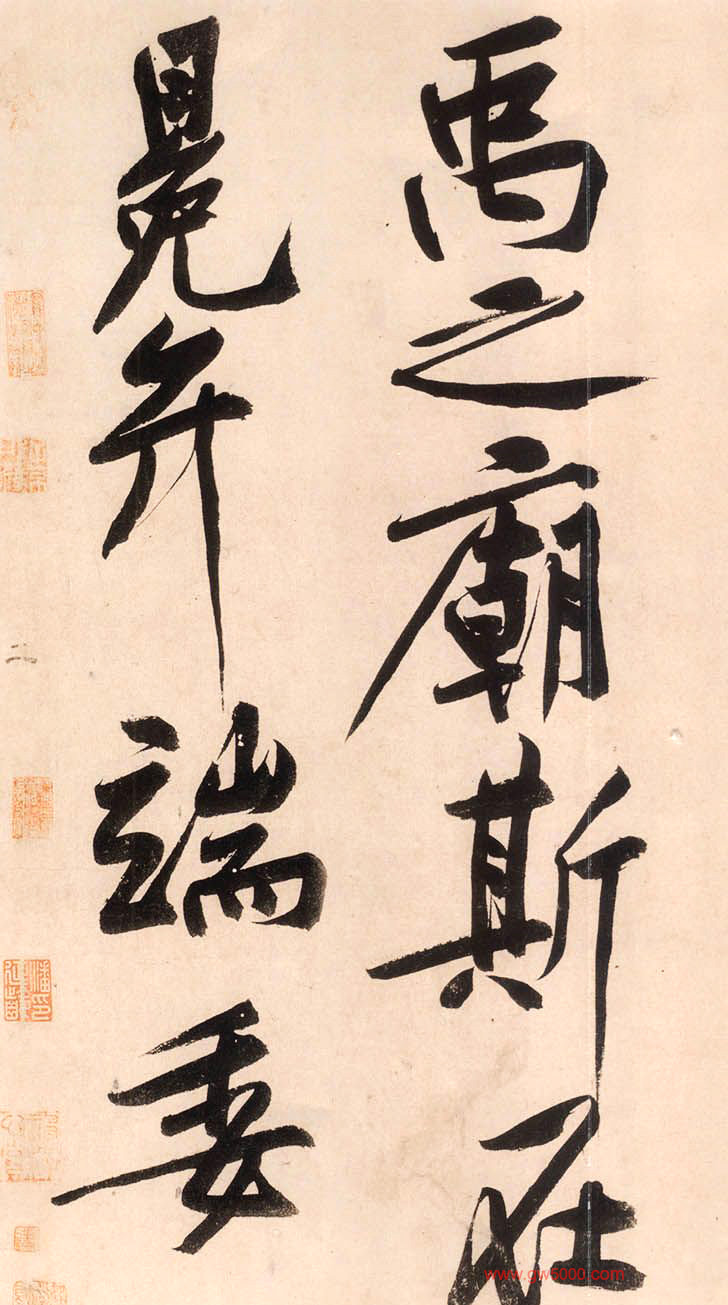 禹之廟斯在
冕弁端委
二
www.gw5000.com